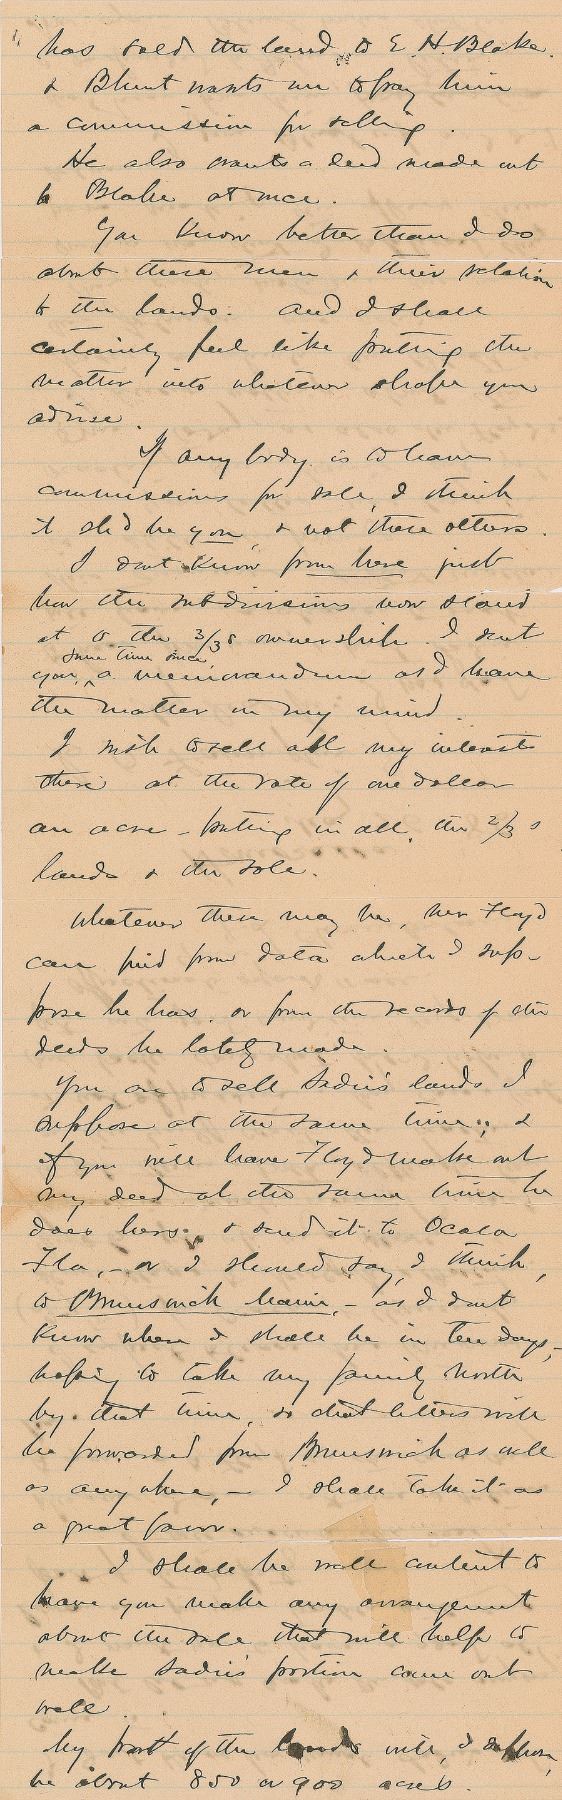 has sold the land to E. H. Blake.
& Blunt wants me to pay him
a commission for selling.
He also wants a deed made out
to Blake at once.
You know better than I do
about these men & their relation
to the lands. And I shall
certainly feel like putting the
matter into whatever shape you
advise.
If any body is to have
commissions for sale, I think
it sh'd be you, & not these others.
I dont know from here just
how the subdivisions now stand
as to the 2/3s ownership. I sent
some time since,
you, ^ a memorandum as I have
the matter in my mind.
I wish to sell all my interest
there at the rate of one dollar
an acre - putting in all, the 2/3s
lands & the sole.
Whatever there may be, Floyd
can find from data which I sup-
pose he has, or from the records of the
deeds he lately made.
You are to sell Sadie's lands I
suppose at the same time; &
if you will have Floyd make out
my deed at the same time he
does hers, & send it to Ocala
Fla, - or I should say, I think,
to Brunswick Maine, - as I dont
know where I shall be in ten days, -
hoping to take my family north
by that time, so that letters will
be forwarded from Brunswick as well
as any where, - I shall take it as
a great favor.
I shall be well content to
have you make any arrangement
about the sale that will help to
make Sadie's portion come out
well.
My part of the lands will, I suppose,
be about 850 or 900 acres.